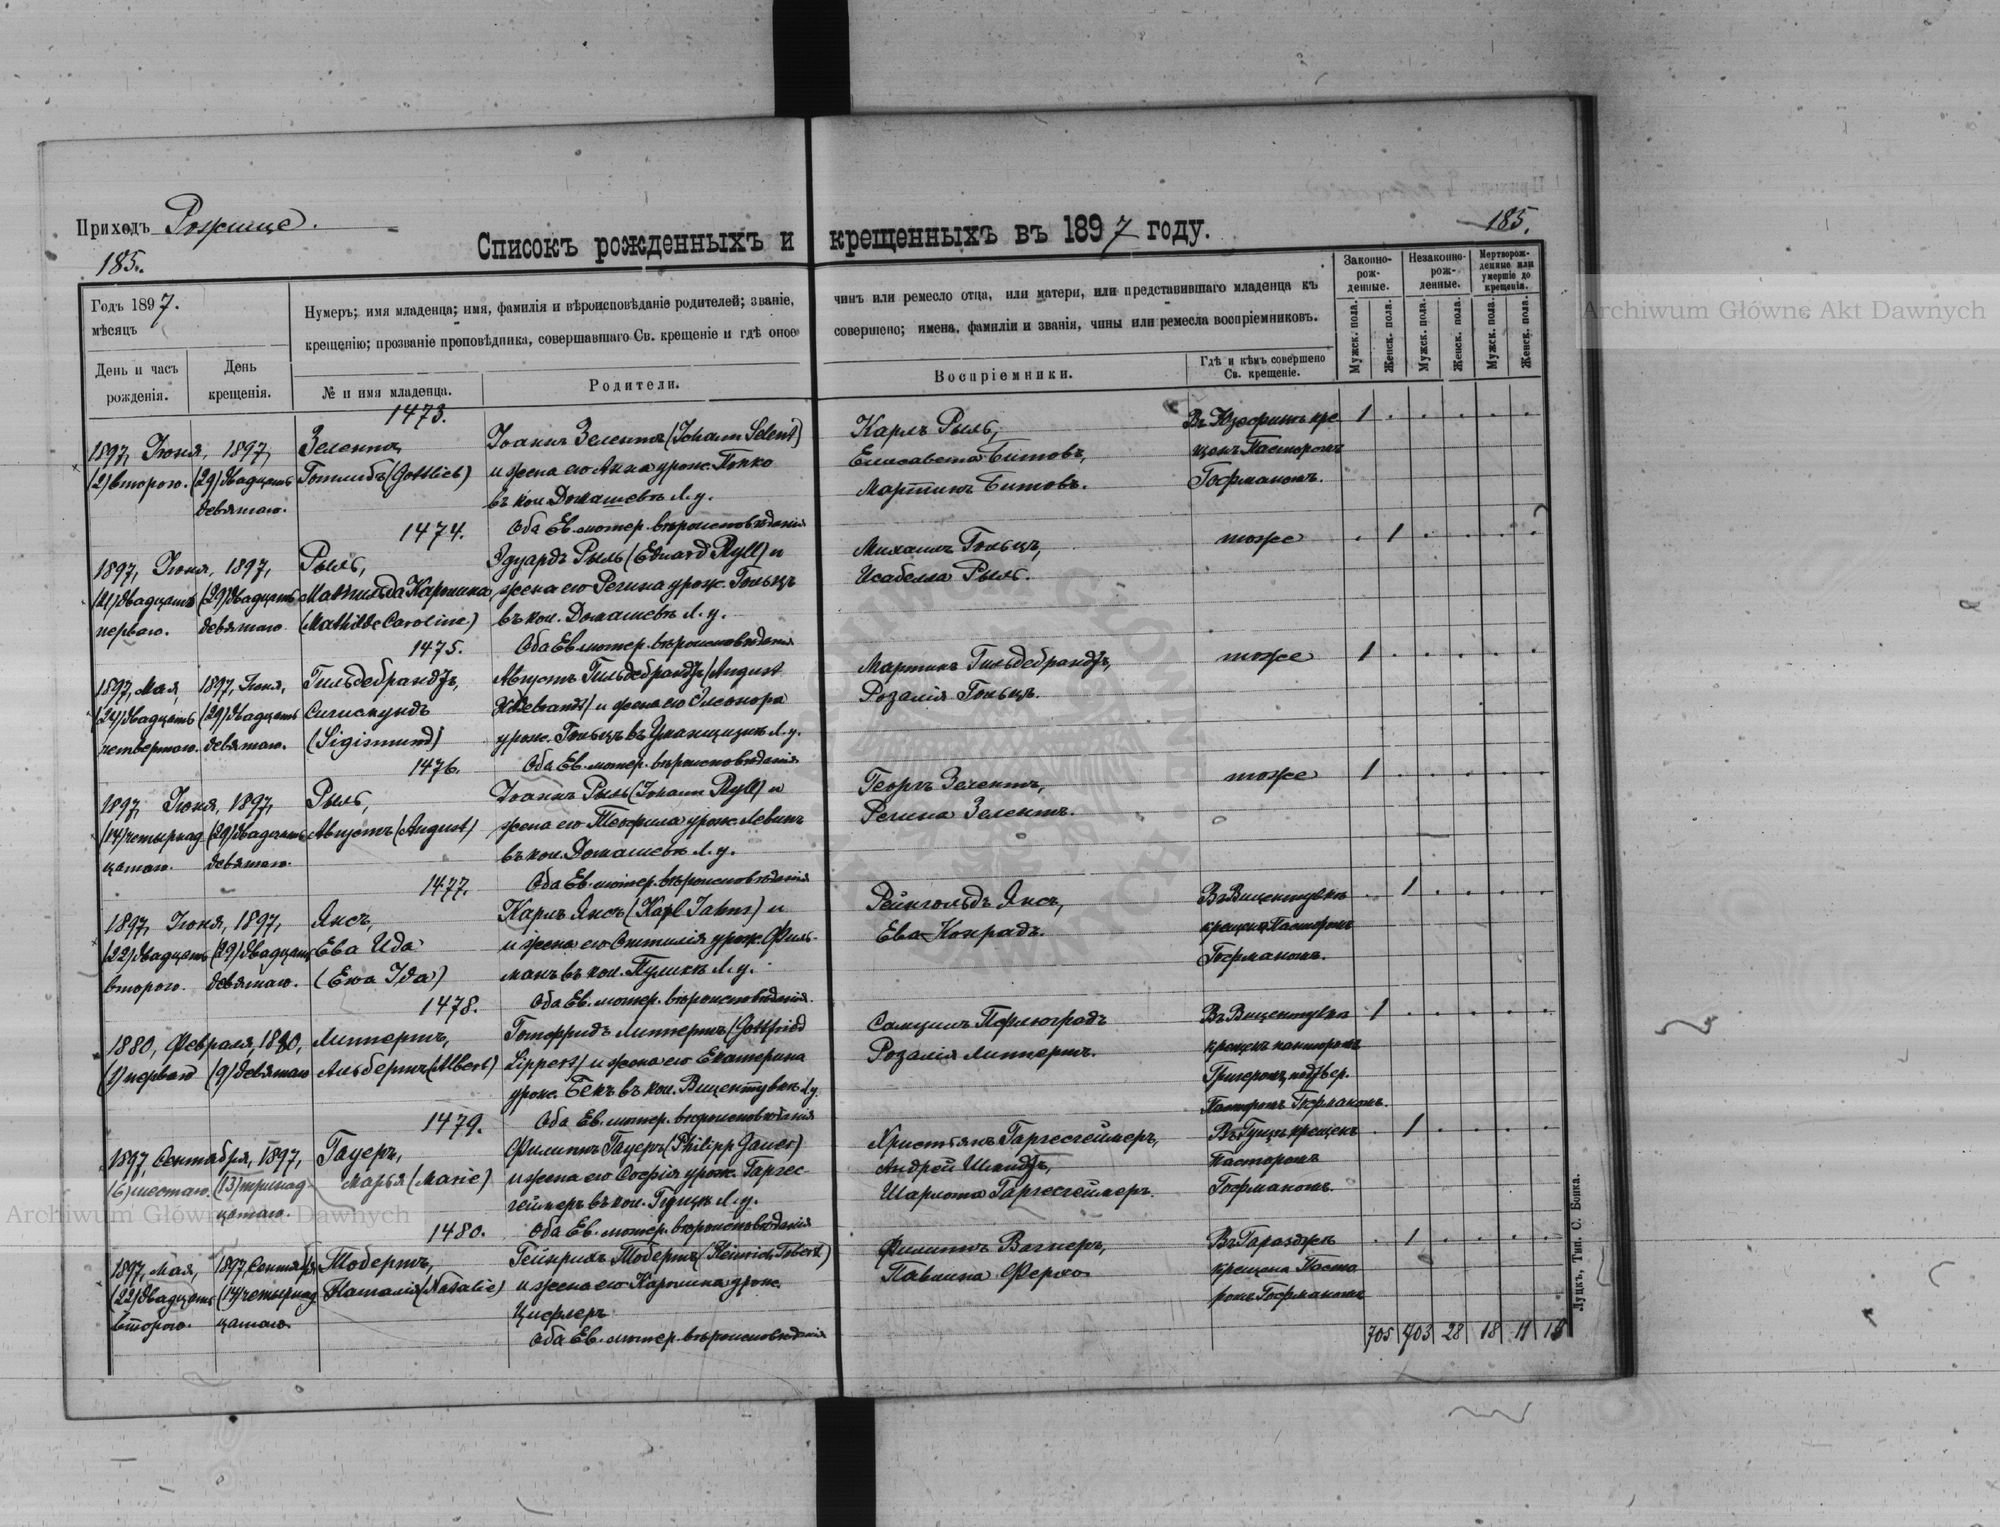 Приходъ Рожище.
185.
Списокъ рожденныхъ и крещенныхъ въ 1897 году.
185.
Годъ 1897.
мѣсяцъ
День и часъ рожденія.
День крещенія.
Нумеръ; имя младенца; имя, фамилія и вѣроисповѣданіе родителей; званіе, чинъ или ремесло отца, или матери, или представившаго младенца къ
крещенію; прозваніе проповѣдника, совершавшаго Св. крещеніе и гдѣ оное совершено; имена, фамиліи и званія, чины или ремесла воспріемниковъ.
№ и имя младенца.
Родители.
Воспріемники.
Гдѣ и кѣмъ совершено Св. крещеніе.
Законно-рож-денные.
Незаконно-рож-денные.
Мертворож-денные или умершіе до крещенія.
Мужск. пола.
Женск. пола.
Мужск. пола.
Женск. пола.
Мужск. пола.
Женск. пола.
1473.
1897, Іюня, 1897, Зелентъ, Іоаннъ Зелентъ (Johann Selent) Карлъ Рыль, Въ Юзефинѣ кре 1
(2) второго. (29) двадцать Готлибъ (Gottlieb) и жена его Анна урож. Попко Елисавета Битовъ, щенъ Пасторомъ
девятаго. въ кол. Домашевѣ Л. у. Мартинъ Битовъ. Гофманомъ.
1474. Оба Ев. лютер. вѣроисповѣданія
1897, Іюня, 1897, Рыль, Эдуардъ Рыль (Eduard Ryll) и Михаилъ Гольцъ, тоже 1
(21) двадцать (29) двадцать Матильда Каролина жена его Регина урож. Гольцъ Исабелла Рыль.
перваго. девятаго (Mathilde Caroline) въ кол. Домашевѣ Л. у.
1475. Оба Ев. лютер. вѣроисповѣданія
1897, Мая, 1897, Іюня, Гильдебрандъ, Августъ Гильдебрандъ (August Мартинъ Гильдебрандъ, тоже 1
(24) двадцать (29) двадцать Сигисмундъ Hildebrandt) и жена его Элеонора Розалія Гольцъ.
четвертаго. девятаго. (Sigismund) урож. Гольцъ въ Л. у.
1476. Оба Ев. лютер. вѣроисповѣданія
1897, Іюня, 1897, Рыль, Іоаннъ Рыль (Johann Ryll) и Георгъ Зелентъ, тоже 1
(14) четырнад (29) двадцать Августъ (August) жена его Теофила урож. Левинъ Регина Зелентъ.
цатаго. девятаго. въ кол. Домашевѣ Л. у.
1477. Оба Ев. лютер. вѣроисповѣданія
1897, Іюня, 1897, Янсъ, Карлъ Янсъ (Karl Jahns) и Рейнгольдъ Янсъ, Въ Вицентувкѣ 1
(22) двадцать (29) двадцать Ева Ида и жена его Оттилія урож. Филь- Ева Конрадъ. крещена Пасторомъ
второго. девятаго. (Ewa Ida) манъ въ кол. Л. у. Гофманомъ.
1478. Оба Ев. лютер. вѣроисповѣданія.
1880, Февраля, 1880, Липпертъ, Готфридъ Липпертъ (Gottfried Въ Вицентувкѣ 1
(1) первой (9) девятаго Альбертъ (Albert) Lippert) и жена его Екатерина Розалія Липпертъ. крещенъ
урож. Бекъ въ кол. Вицентувкѣ Л. у.
Пасторомъ Гофманомъ.
1479. Оба Ев. лютер. вѣроисповѣданія
1897, Сентября, 1897, Гауеръ, Филиппъ Гауеръ (Philipp Gauer) Христіанъ Гаргесгеймеръ, крещена 1
(6) шестаго. (13) тринад- Марья (Marie) и жена его Софія урож. Гаргес- Андрей Шмидтъ, Пасторомъ
цатаго. геймеръ въ кол. Л. у. Шарлота Гаргесгеймеръ. Гофманомъ.
1480. Оба Ев. лютер. вѣроисповѣданія
1897, Мая, 1897, Сентября Тобертъ, Гейнрихъ Тобертъ (Heinrich Tobert) Филиппъ Вагнеръ, 1
(22) двадцать (14) четырнад Наталія (Natalie) и жена его Каролина урож. Павлина крещена Пасто
второго. цатаго. Циглеръ ромъ Гофманомъ
Оба Ев. лютер. вѣроисповѣданія
705 703 28 18 11
Луцкъ, Тип. С. Бонка.
Archiwum Główne Akt Dawnych
Archiwum Główne Akt Dawnych